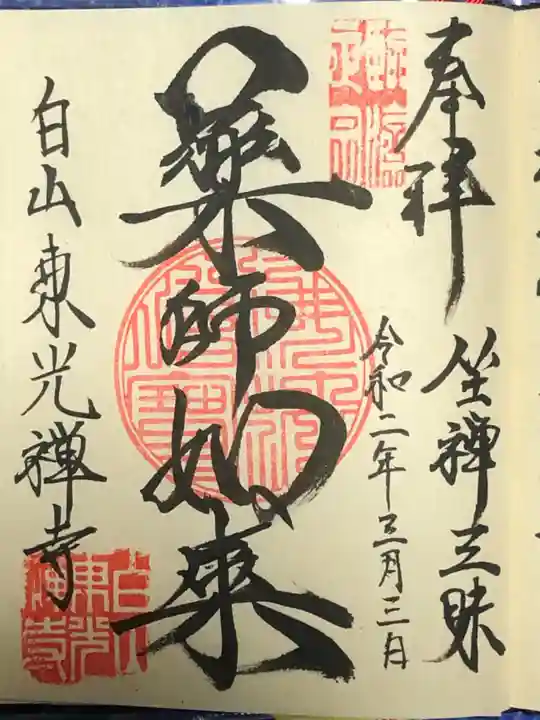 奉拝
坐禅三昧
令和二年三月三日
薬師如来
白山東光禅寺